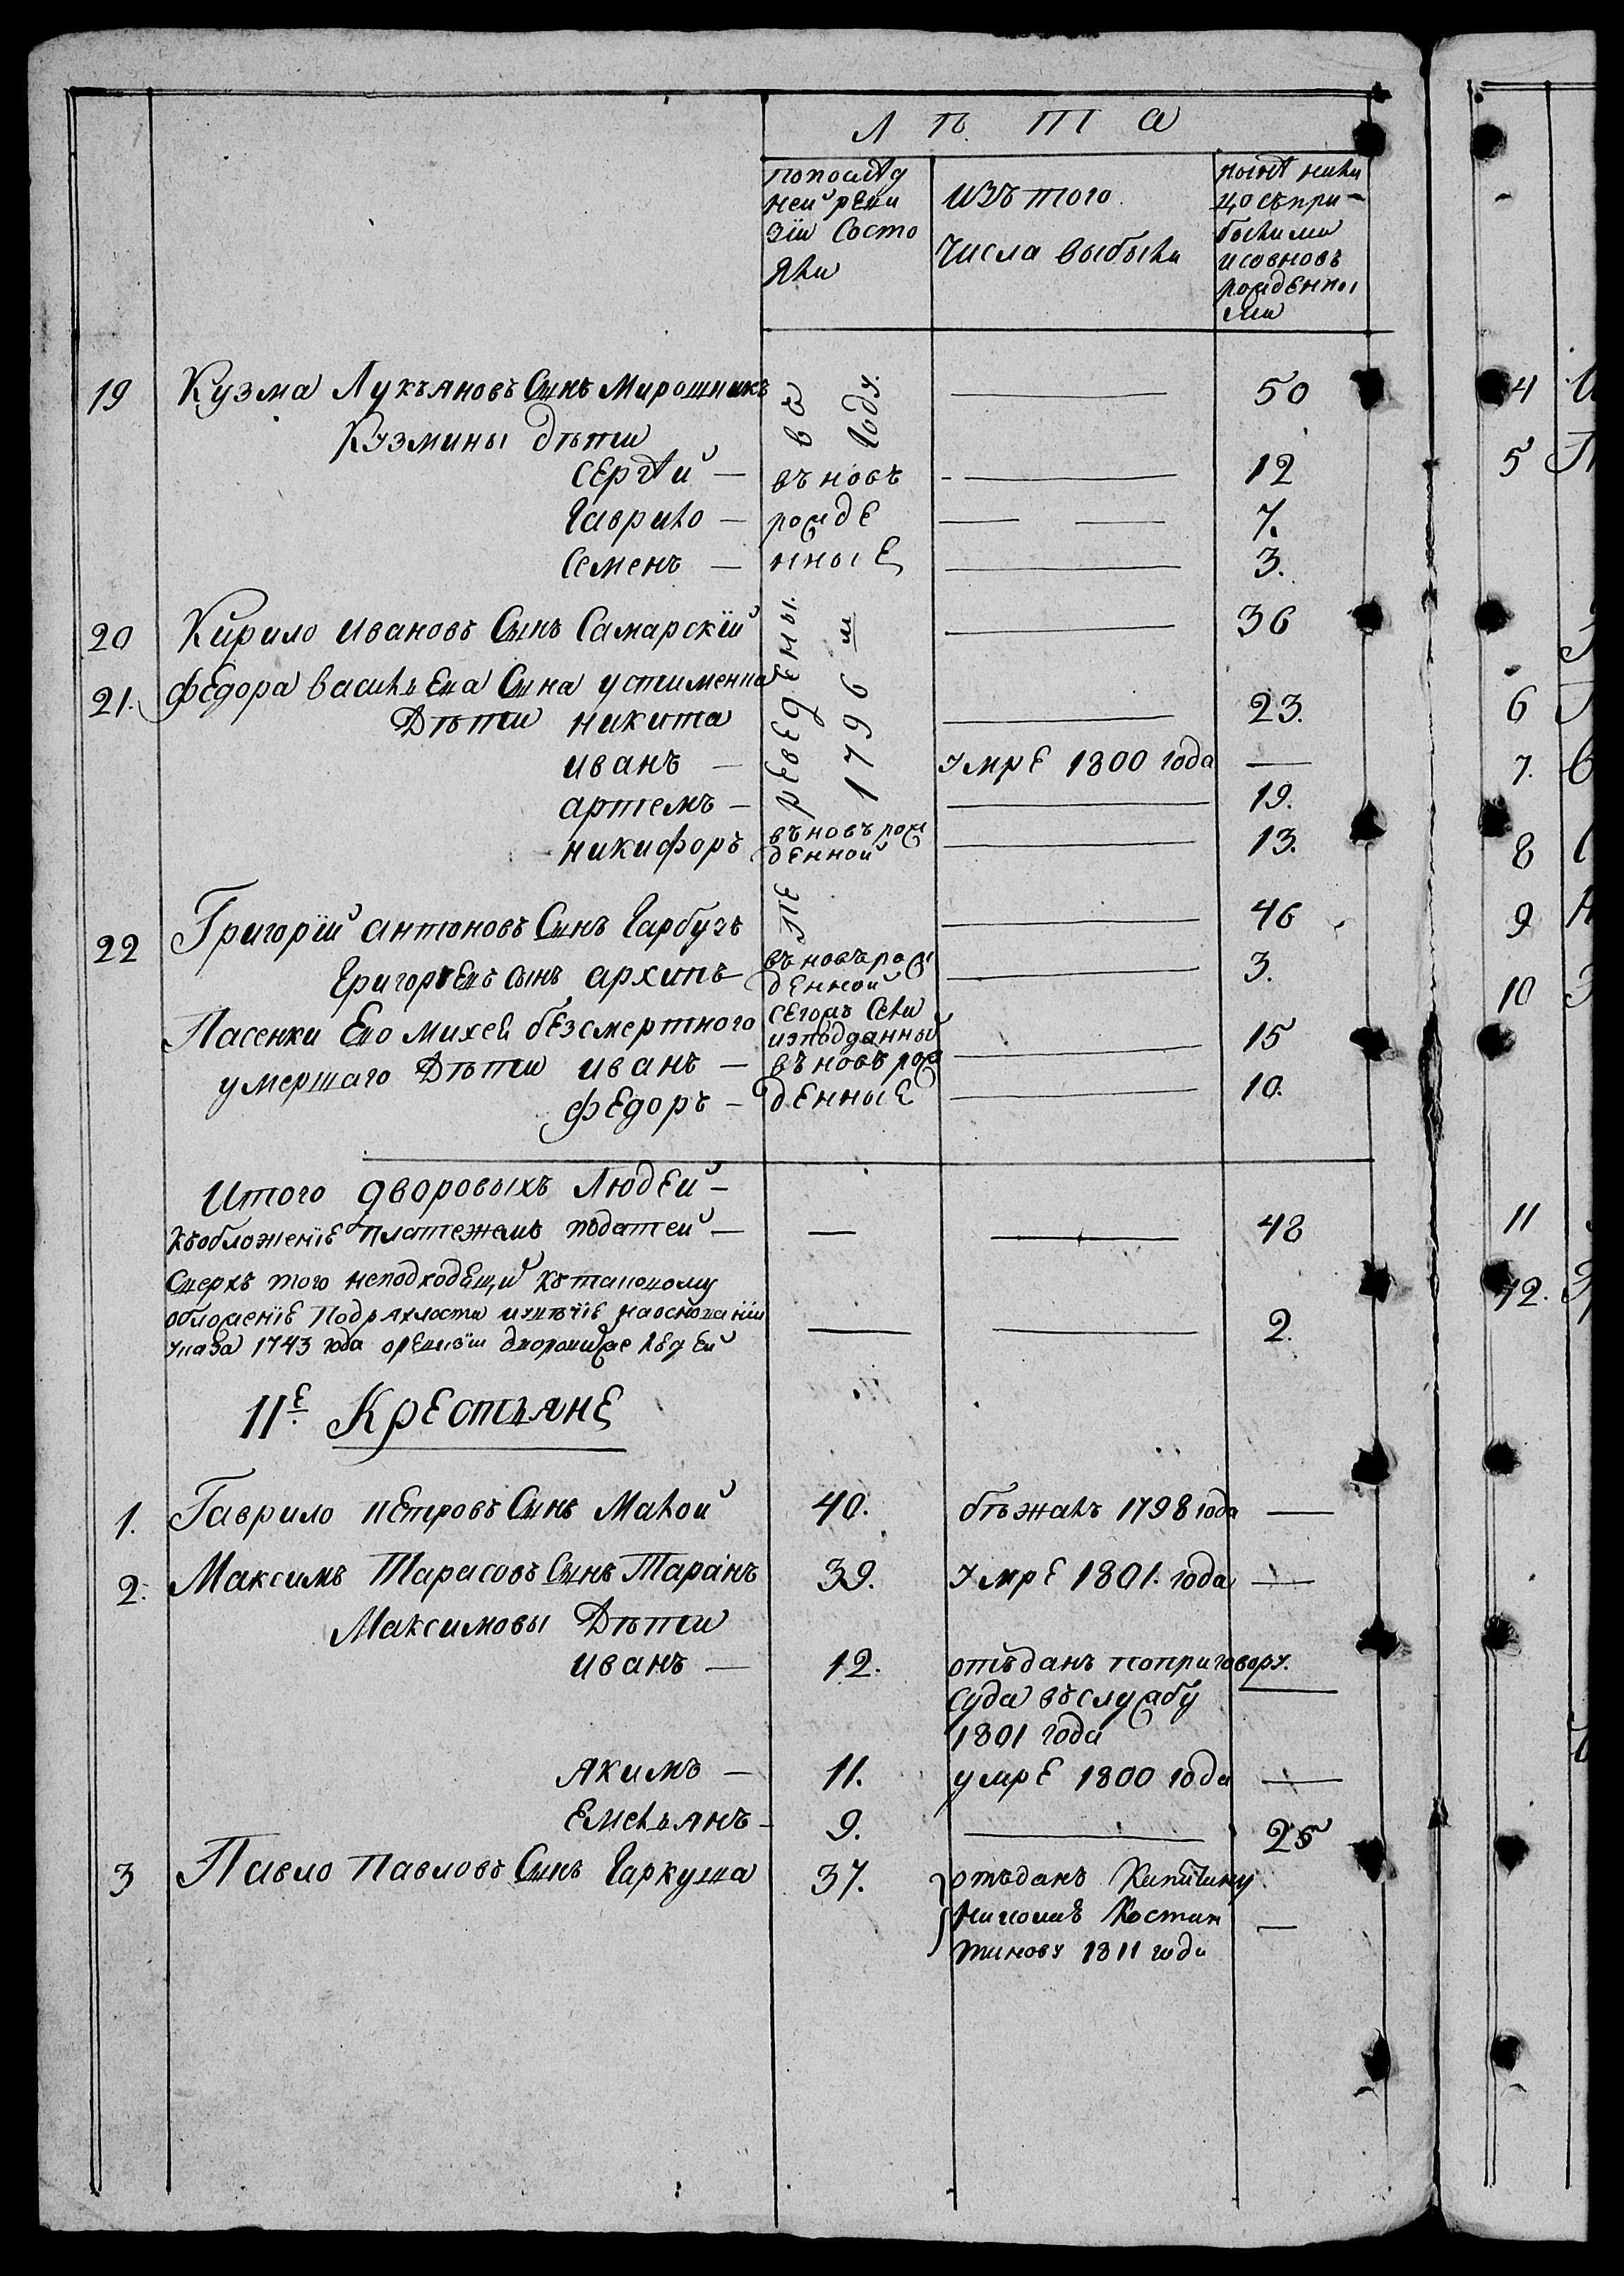 Л ѣ т а
попослѣд
ней реви
зіи Состо
яли
изъ того
Числа выбыли
нынѣ нали
цо съпри-
былыми
исовновъ
рожденны
ми
19 Кузма Лукъяновъ Сынъ Мирошникъ — 50
Кузмины дѣти
Сергѣй — въновь — 12
Гаврило — рожде — — 7.
Семенъ — нные — 3.
20 Кирило ивановъ Сынъ Самарскій — 36
21. федора васильева Сына устименка
Дѣти никита — 23.
иванъ — умре 1800 года —
артемъ — — 19.
никифоръ въновърож
денной — 13.
переведены в
1796 м году
22 Григорій антоновъ Сынъ Гарбузъ — 46
Григорьевъ сынъ архипъ въновърож
денной — 3.
Пасенки Ево михея безсмертного сегожъ Села
изподданных
умершаго Дѣти иванъ — въновърож — 15
федоръ — денные — 10.
Итого дворовыхъ Людей —
Къобложеніе платежемъ податей — — — 48
Сверхъ того неподходящій Кътаковому
обложеніе Подряхлости иувѣчіе наоснованіи
указа 1743 года оревизіи — — 2.
II е. Крестьяне
1. Гаврило петровъ Сынъ Малой 40. бѣжалъ 1798 года —
2. Максимъ Тарасовъ Сынъ Таранъ 39. умре 1801. года —
Максимовы Дѣти
иванъ — 12. отъданъ поприговору.
Суда въслужбу —
1801 года
якимъ — 11. умре 1800 года —
емельянъ — 9. — 25
3 Павло павловъ Сынъ Гаркуша 37. отъданъ Капитану
Николаю Костан
тинову 1811 года —
4
5
6
7.
8
9
10
11
12.